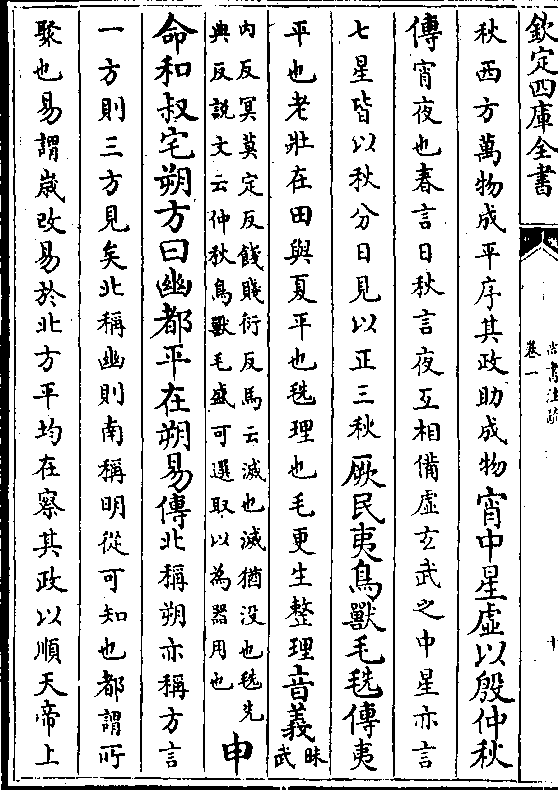 欽定四庫全書
尚書注疏
卷一
十
秋西方萬物成平序其政助成物宵中星虛以殷仲秋
傳宵夜也春言日秋言夜互相備虛玄武之中星亦言
七星皆以秋分日見以正三秋厥民夷鳥獸毛毨傳夷
平也老壯在田與夏平也毨理也毛更生整理音義昧武
內反冥莫定反餞賤衍反馬云滅也滅猶没也毨先
典反說文云仲秋鳥獸毛盛可選取以為器用也申
命和叔宅朔方曰幽都平在朔易傳北稱朔亦稱方言
一方則三方見矣北稱幽則南稱明從可知也都謂所
聚也易謂歲改易於北方平均在察其政以順天帝上